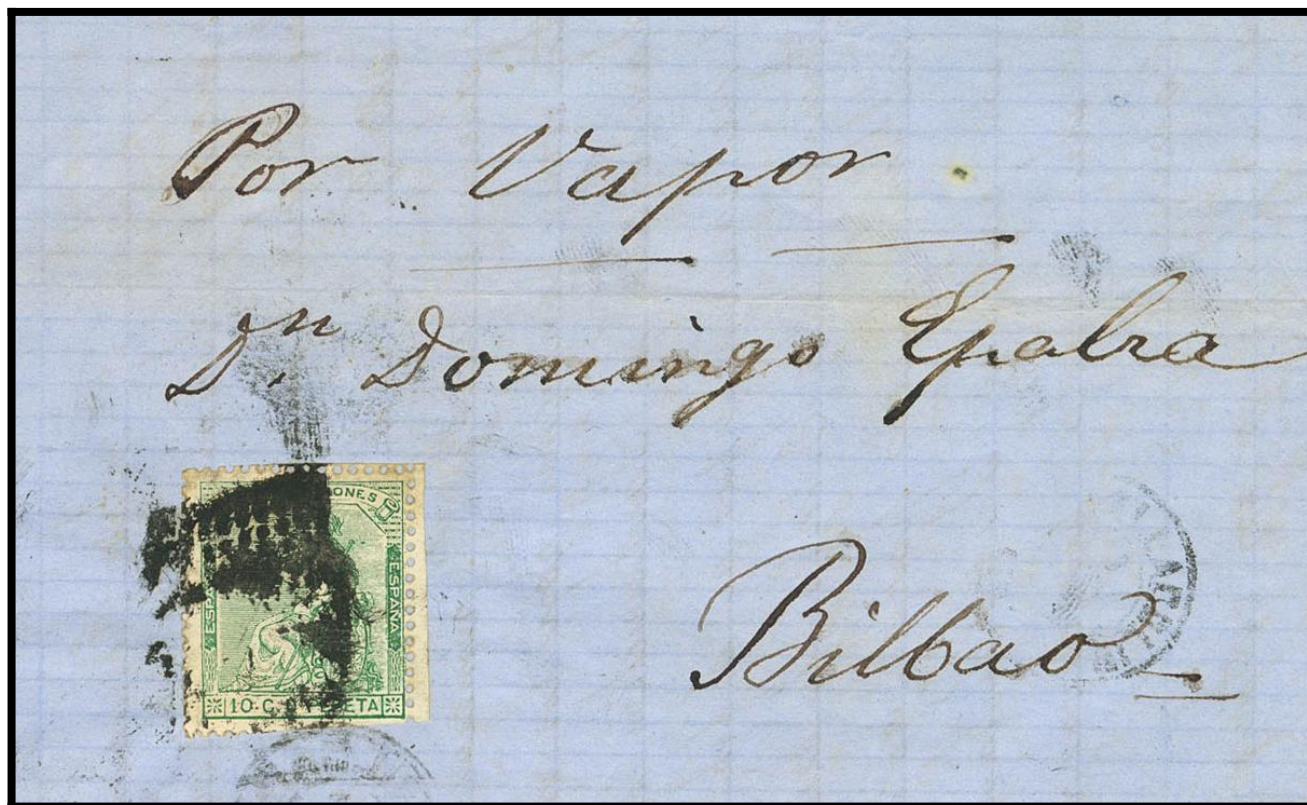 Por Vapor.
Dn. Domingo Epalza
Bilbao
ESPAÑA
10 C. D PESETA